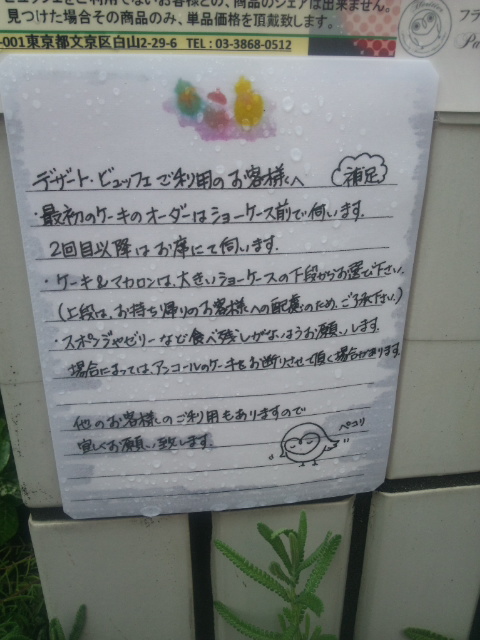 見つけた場合その商品のみ、単品価格を頂戴致します。
-001東京都文京区白山2-29-6 TEL : 03-3868-0512
フラ
デザート・ビュッフェご利用のお客様へ 補足
・最初のケーキのオーダーはショーケース前で伺います。
2回目以降はお席にて伺います。
・ケーキ&マカロンは、大きいショーケースの下段からお選び下さい。
(上段は、お持ち帰りのお客様への配慮のため、ご了承下さい。)
・スポンジやゼリーなど食べ残しがないようお願いします。
場合によっては、アンコールのケーキをお断りさせて頂く場合があります。
他のお客様のご利用もありますので
宜しくお願い致します。
ペコリ